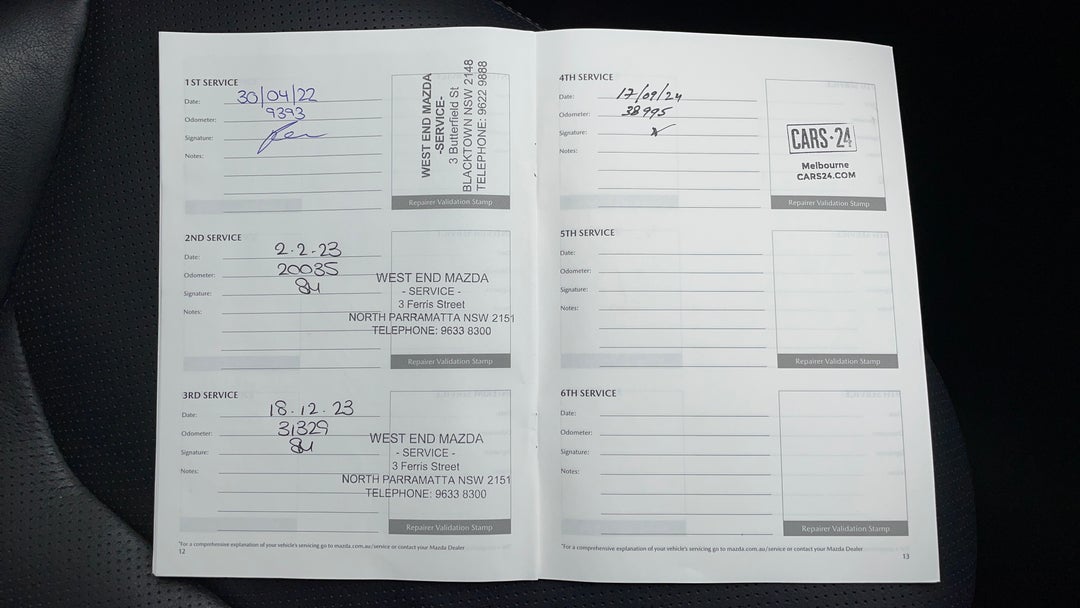 1ST SERVICE
Date: 30/04/22
Odometer: 9393
Signature:
Notes:
WEST END MAZDA
-SERVICE-
3 Butterfield St
BLACKTOWN NSW 2148
TELEPHONE: 9622 9888
Repairer Validation Stamp
2ND SERVICE
Date: 2.2.23
Odometer: 20035
Signature:
Notes:
WEST END MAZDA
- SERVICE -
3 Ferris Street
NORTH PARRAMATTA NSW 2151
TELEPHONE: 9633 8300
Repairer Validation Stamp
3RD SERVICE
Date: 18.12.23
Odometer: 31329
Signature:
Notes:
WEST END MAZDA
- SERVICE -
3 Ferris Street
NORTH PARRAMATTA NSW 2151
TELEPHONE: 9633 8300
Repairer Validation Stamp
*For a comprehensive explanation of your vehicle's servicing go to mazda.com.au/service or contact your Mazda Dealer
12
4TH SERVICE
Date: 17/09/24
Odometer: 38995
Signature:
Notes:
CARS·24
Melbourne
CARS24.COM
Repairer Validation Stamp
5TH SERVICE
Date:
Odometer:
Signature:
Notes:
Repairer Validation Stamp
6TH SERVICE
Date:
Odometer:
Signature:
Notes:
Repairer Validation Stamp
*For a comprehensive explanation of your vehicle's servicing go to mazda.com.au/service or contact your Mazda Dealer
13